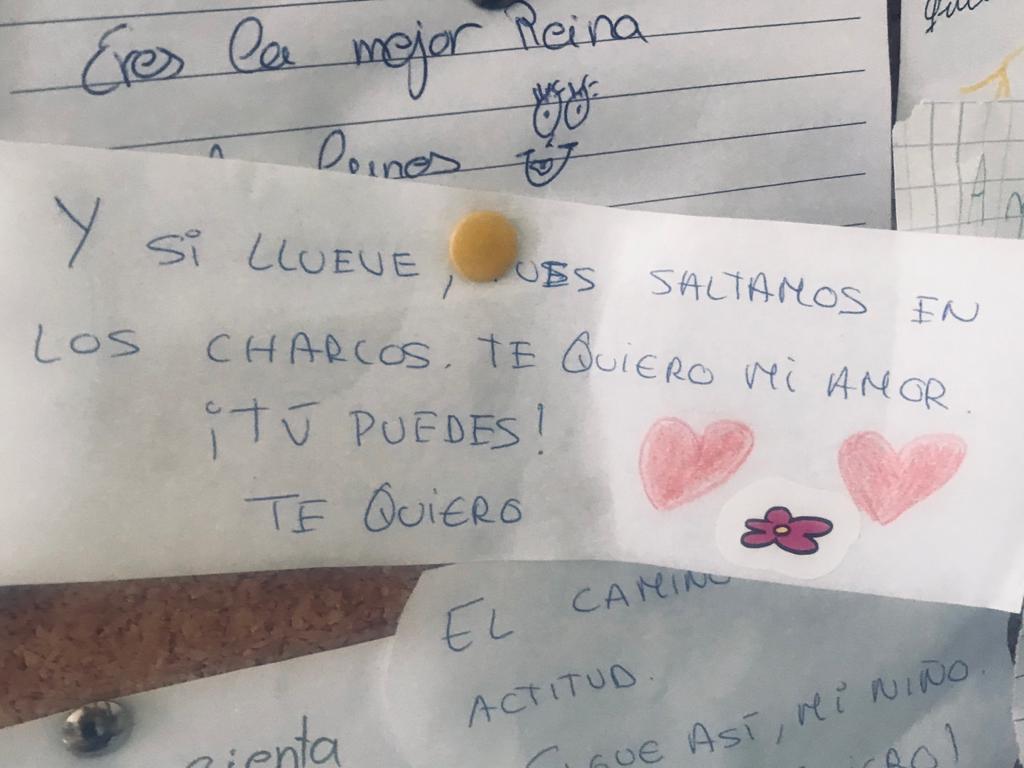 Eres la mejor Reina
Y Si LLUEVE, SALTAMOS EN
LOS CHARCOS. TE QUiERO Mi AMOR.
¡TÚ PUEDES!
TE QUiERO
EL CAMINO
ACTITUD.
SIGUE ASÍ, Mi NIÑO.